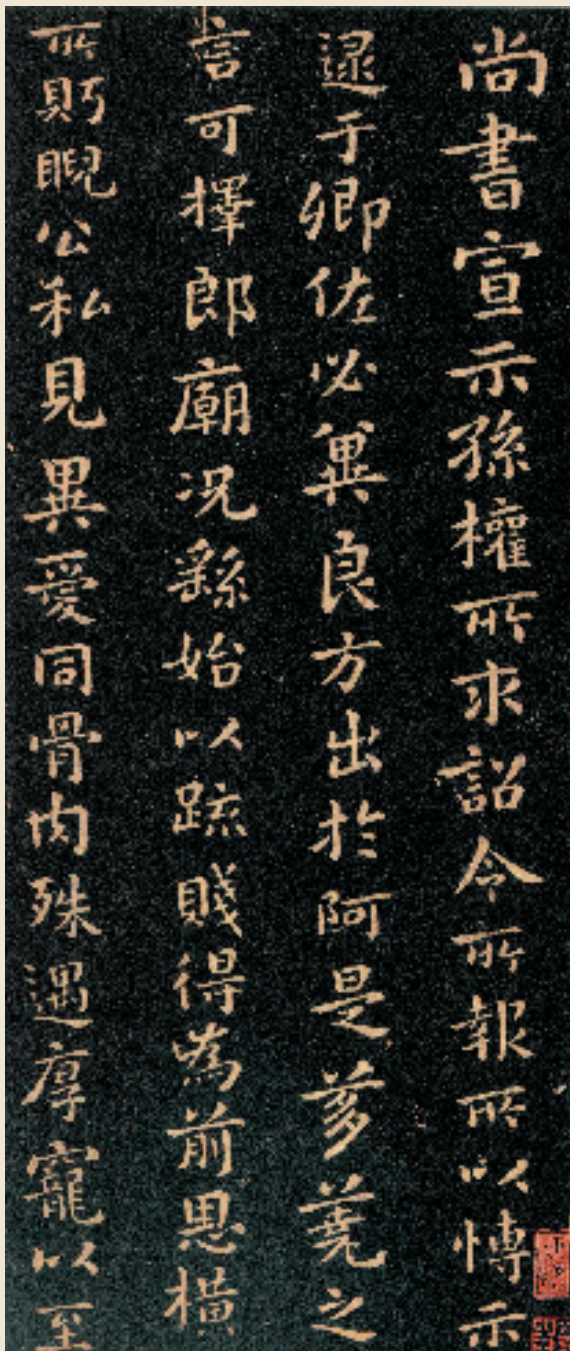 尚書宣示孫權所求詔令所報所以愽示
逮于卿佐必兾良方出於阿是芻蕘之
言可擇郎廟况繇始以疏賤得為前恩橫
所眄睨公私見異愛同骨肉殊遇厚寵以至